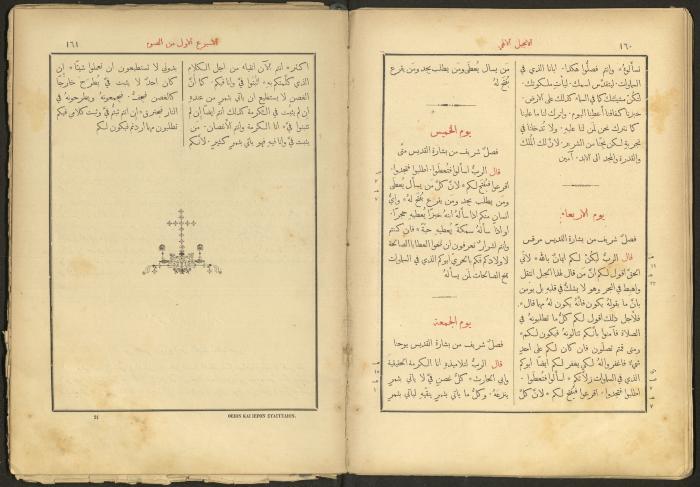 ١٦٠
الانجيل الالهي
تسألوهُ * وانتم فصلّوا هكذا. ابانا الذي في
السماوات. ليتقدّس اسمك. ليأتِ ملكوتك.
لتكن مشيئتك كما في السماء كذلك على الارض.
خبزنا كفافنا أعطنا اليوم. واترك لنا ما علينا
كما نترك نحن لمن لنا عليه. ولا تُدخلنا في
تجربةٍ لكن نجّنا من الشرير. لانَّ لك الملك
والقدرة والمجد الى الابد. آمين
يوم الاربعاء
فصلٌ شريف من بشارة القديس مرقس
قال الربُّ ليكنْ لكم ايمانٌ بالله * لاني
الحقَّ اقول لكم انَّ مَن قال لهذا الجبل انتقل
واهبط في البحر وهو لا يشكُّ في قلبهِ بل يؤمن
بانَّ ما يقولهُ يكون فانَّهُ يكون لهُ مهما قال *
فلأجل ذلك اقول لكم كلُّ ما تطلبونهُ في
الصلاة فآمنوا بأنكم تنالونهُ فيكون لكم *
ومتى قمتم تصلّون فان كان لكم على احدٍ
شيءٌ فاغفروا لهُ لكي يغفر لكم ايضًا ابوكم
الذي في السماوات زلَّاتكم * اسألوا فتُعطَوا.
اطلبوا فتجدوا. اقرعوا فيُفتح لكم * لانَّ كلَّ
من يسأل يُعطَى ومَن يطلب يجد ومَن يقرع
يُفتح لهُ
يوم الخميس
فصلٌ شريف من بشارة القديس متّى
قال الربُّ اسألوا فتُعطَوا. اطلبوا فتجدوا.
اقرعوا فيُفتح لكم * لانَّ كلَّ من يسأل يُعطَى
ومَن يطلب يجد ومَن يقرع يُفتح لهُ * وايُّ
انسانٍ منكم اذا سألهُ ابنهُ خبزًا يُعطيهِ حجرًا.
او اذا سألهُ سمكةً يُعطيهِ حيَّة * فان كنتم
وانتم اشرارٌ تعرفون ان تمنحوا العطايا الصالحة
لاولادكم فكم بالحري ابوكم الذي في السماوات
يمنح الصالحات لمن يسألهُ
يوم الجمعة
فصلٌ شريف من بشارة القديس يوحنا
قال الربُّ لتلاميذهِ انا الكرمة الحقيقية
وابي الحارث * كلُّ غصنٍ فيَّ لا يأتي بثمرٍ
ينزعهُ. وكلُّ ما يأتي بثمرٍ ينقّيهِ ليأتي بثمرٍ
الاسبوع الاول من الصوم
١٦١
اكثر * انتم الآن انقياء من اجل الكلام
الذي كلَّمتكم بهِ * اثبتوا فيَّ وانا فيكم. كما أنَّ
الغصن لا يستطيع ان يأتي بثمرٍ من عندهِ
ان لم يثبت في الكرمة كذلك انتم ايضًا ان لم
تثبتوا فيَّ * انا الكرمة وانتم الاغصان. مَن
يثبت فيَّ وانا فيهِ فهو يأتي بثمرٍ كثيرٍ. لانكم
بدوني لا تستطيعون ان تعملوا شيئًا * إن
كان احدٌ لا يثبت فيَّ يُطرَح خارجًا
كالغصن فيجفّ. فيجمعونهُ ويطرحونهُ في
النار فيحترق * ان انتم ثبتُّم فيَّ وثبت كلامي فيكم
تطلبون مهما اردتم فيكون لكم
21
ΘΕΙΟΝ ΚΑΙ ΙΕΡΟΝ ΕΥΑΓΓΕΛΙΟΝ.